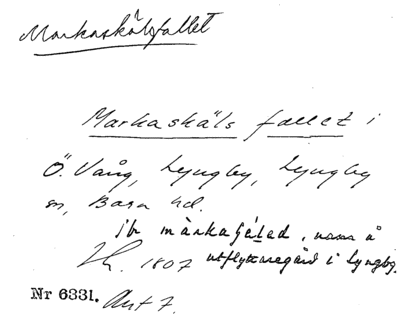 Markaskälsfallet
Markaskäls fallet i
Ö. Vång, Lyngby, Lyngby
sn, Bara hd.
jfr märkasjäled, namn å
1807 utflyttaregård i Lyngby.
Nr 6331. Akt 7.